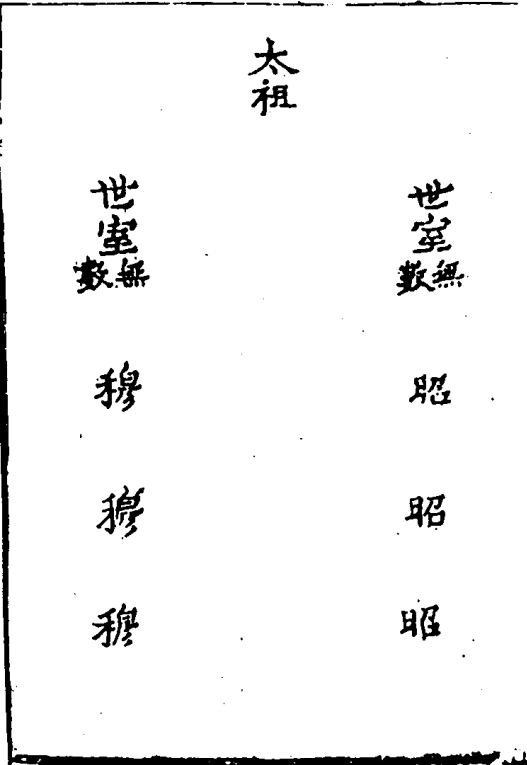 太祖
世室無數
昭
昭
昭
世室無數
穆
穆
穆